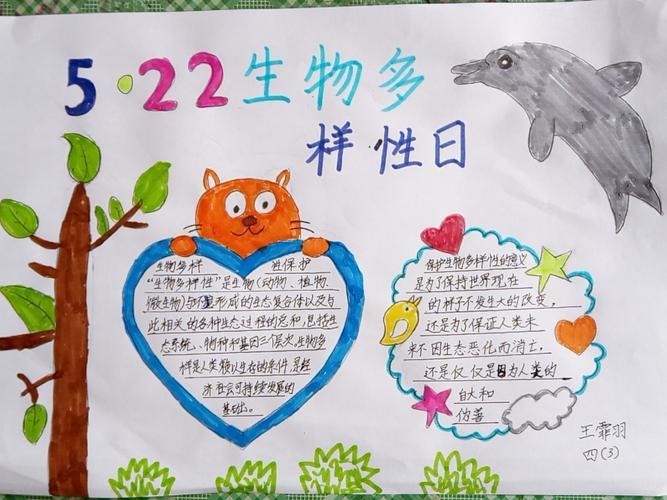 5·22生物多
样·性日
生物多样 性保护
"生物多样性"是生物(动物、植物、
微生物)与环境形成的生态复合体以及与
此相关的各种生态过程的总和,包括生
态系统、物种和基因三个层次,生物多
样是人类赖以生存的条件,是经
济社会可持续发展的
基础。
保护生物多样性的意义
是为了保持世界现在
的样子不发生大的改变,
还是为了保证人类未
来不因生态恶化而消亡,
还是仅仅是因为人类的
自大和
伪善
王霏羽
四(3)